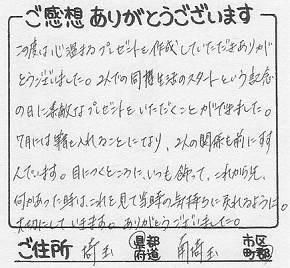 ご感想ありがとうございます
この度は心温まるプレゼントを作成していただきありが
とうございました。2人での同棲生活のスタートという記念
の日に素敵なプレゼントをいただくことができました。
7月には籍を入れることになり、2人の関係も前にすす
んでいます。目につくところに、いつも飾って、これから先、
何かあった時は、これを見て当時の気持ちに戻れるように。
大切にしていきます。ありがとうございました。
ご住所 埼玉 県都府道 南埼玉 市区町郡